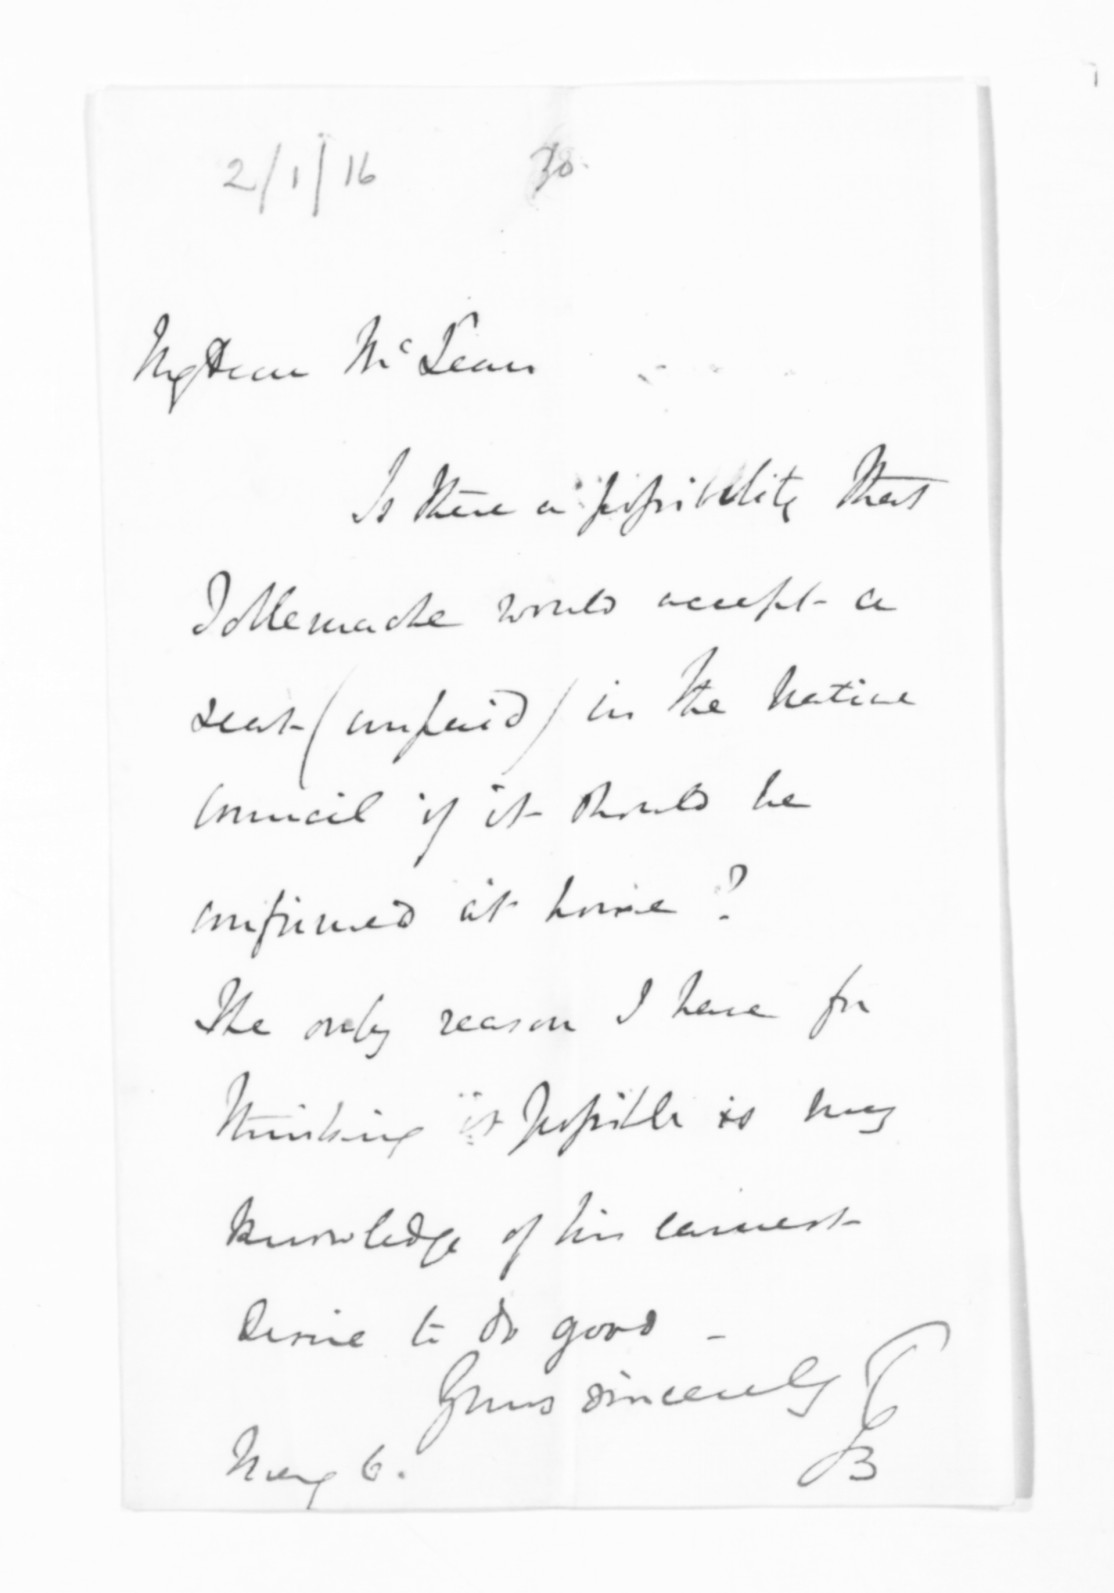 2/1/16 30.
My dear McLean
Is there a possibility that
Tollemache would accept a
seat (unpaid) in the Native
Council if it should be
confirmed at home?
The only reason I have for
thinking it possible is my
knowledge of his earnest
desire to do good -
Yours sincerely
B
May 6.